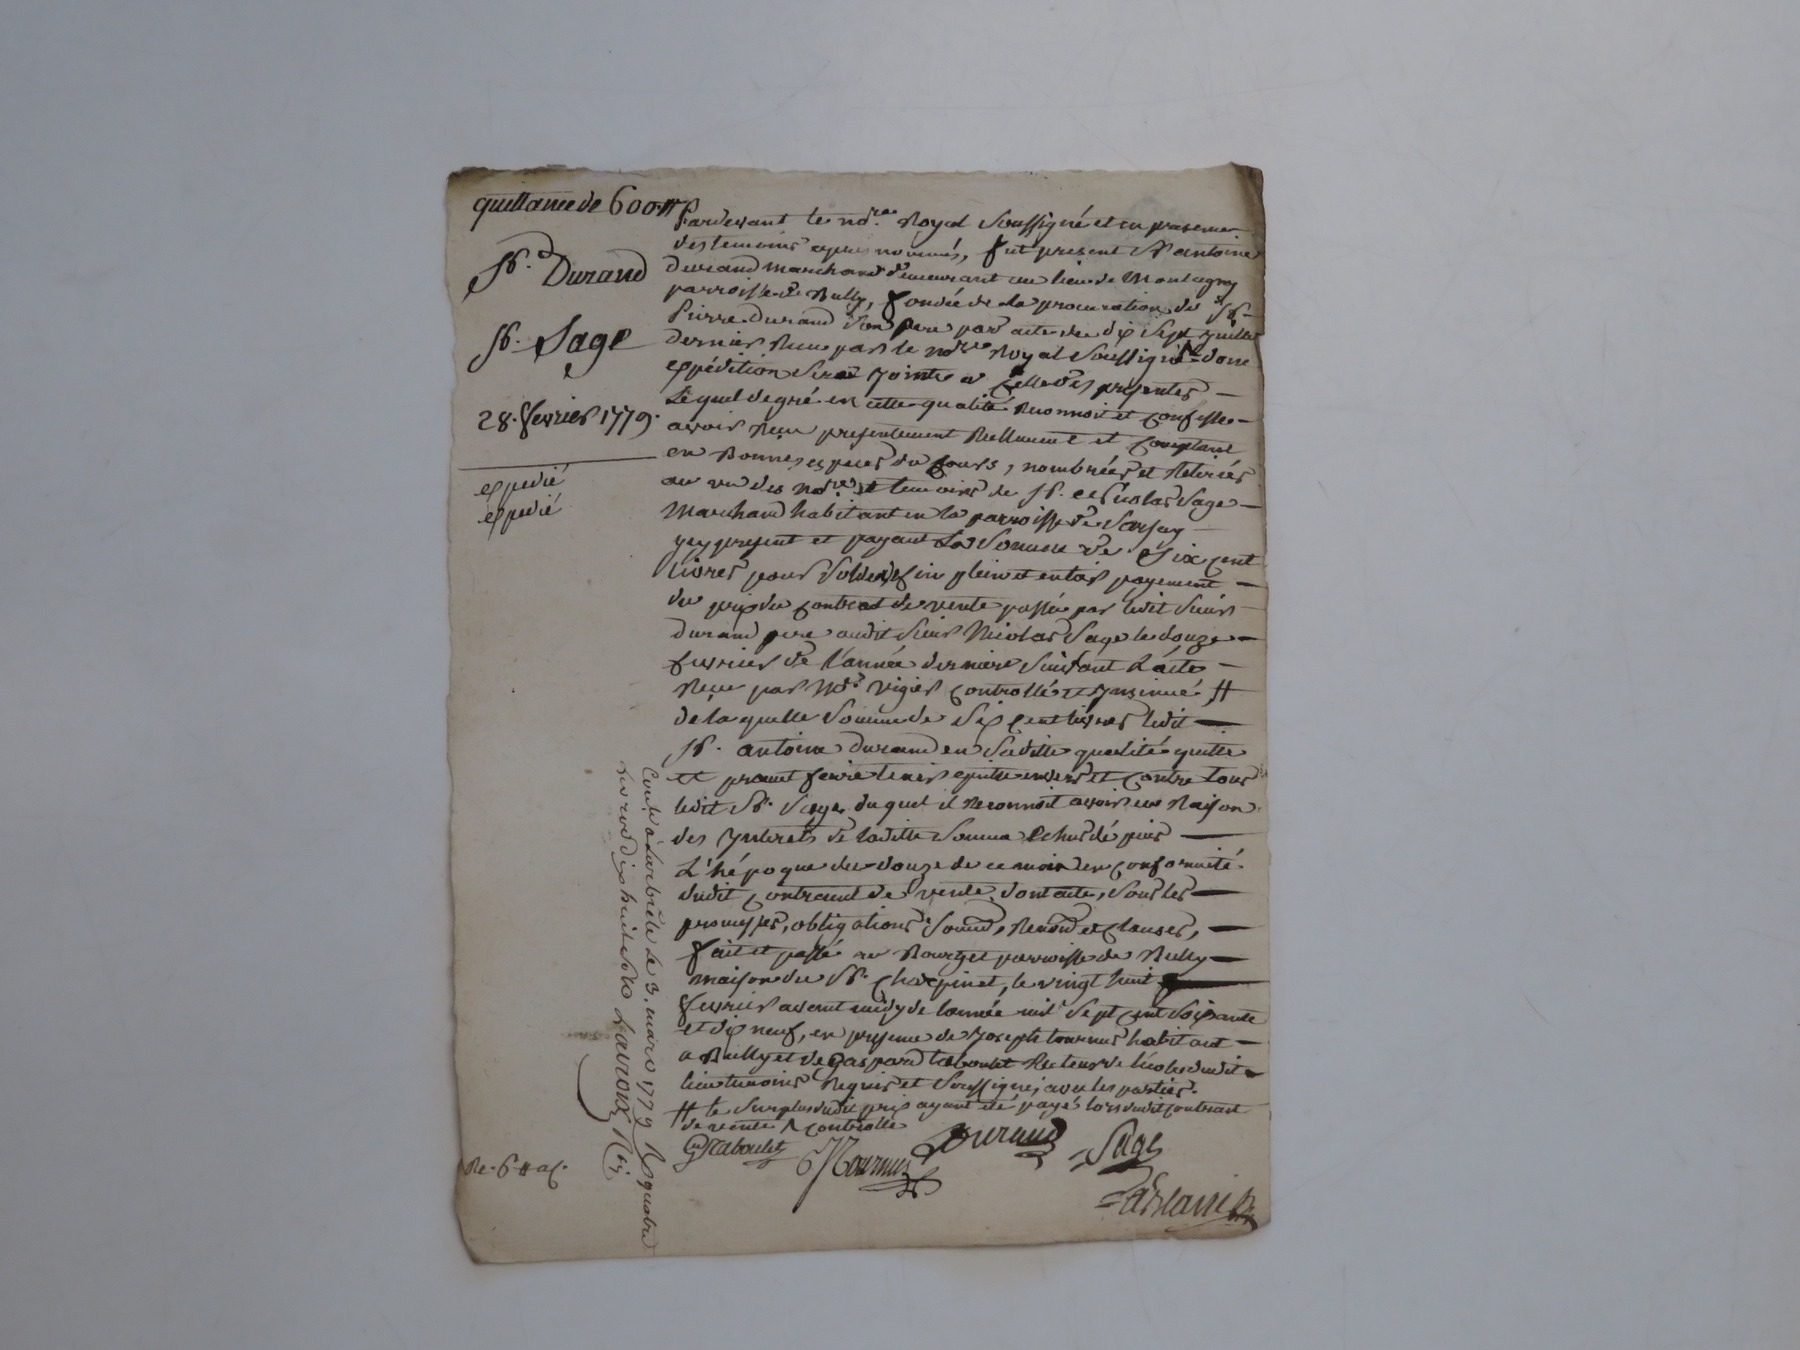 quittance de 600 ₶
Sr. Durand
Sr. Sage
28. fevrier 1779.
expedié
expedié
Pardevant le nore. Royal Soussigné et en presence
des temoins apres nommés, fut present Sr antoine
Durand marchand demeurant au lieu de Montagny
parroisse de Bully, fondé de la procuration de Sr.
Pierre Durand Son pere par acte du dix Sept juillet
dernier Recu par le nore Royal Soussigné dont
expédition Sera jointe a celle des presentes —
Lequel de gré en cette qualité Reconnoit et confesse —
avoir Reçu presentement Reellement et comptant
en Bonnes especes du cours, nombrées et Retirées
au vu des nore. et temoins de Sr. Nicolas Sage —
Marchand habitant en la parroisse de Sarsay —
yci present et payant La Somme de Six cent
livres pour Solde, fin plein et entier payement —
du prix du contrat de vente passé par ledit Sieur
durand pere audit Sieur Nicolas Sage le douze —
fevrier de l'année derniere Suivant L'acte —
Reçu par Me. Vigier controllé et Insinué #
de la quelle Somme de Six cent livres ledit —
Sr. antoine Durand en Saditte qualité quitte
et promet faire tenir quitte envers et contre tous
ledit Sr. Sage, duquel il Reconnoit avoir eu Raison
des Interets de laditte Somme Echus dépuis —
L'hépoque du douze de ce mois en conformité
dudit contract de vente, dont acte, Sous les —
promesses, obligations Soumd, Renond et clauses, —
fait et passé au Bourg et parroisse de Bully —
maison du Sr. Chacpinet, le vingt huit —
fevrier avant midy de lannée mil Sept cent Soixante
et dix neuf, en presence de Joseph tournus habitant —
a Bully et de Gaspard taboulet Recteur de lécole dudit
lieu temoins Requis et Soussignés avec les parties.
# le Surplus dudit prix ayant été payés lors dudit contract
de vente controllé
G Taboulet J Tournus Durand Sage
Re. 6 ₶ a c.
Contlé a Larbrêle le 3. mars 1779 R quatre
livres dix huit Sols Lavroix